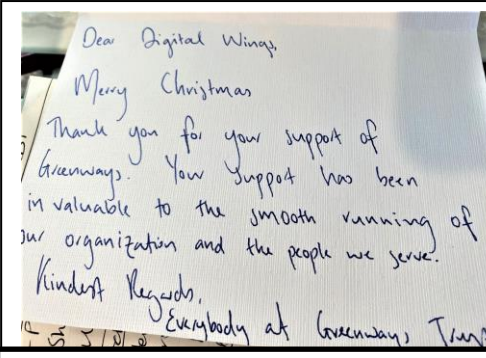 Dear Digital Wings,
Merry Christmas
Thank you for your support of
Greenways. Your support has been
invaluable to the smooth running of
our organization and the people we serve.
Kindest Regards,
Everybody at Greenways Trus